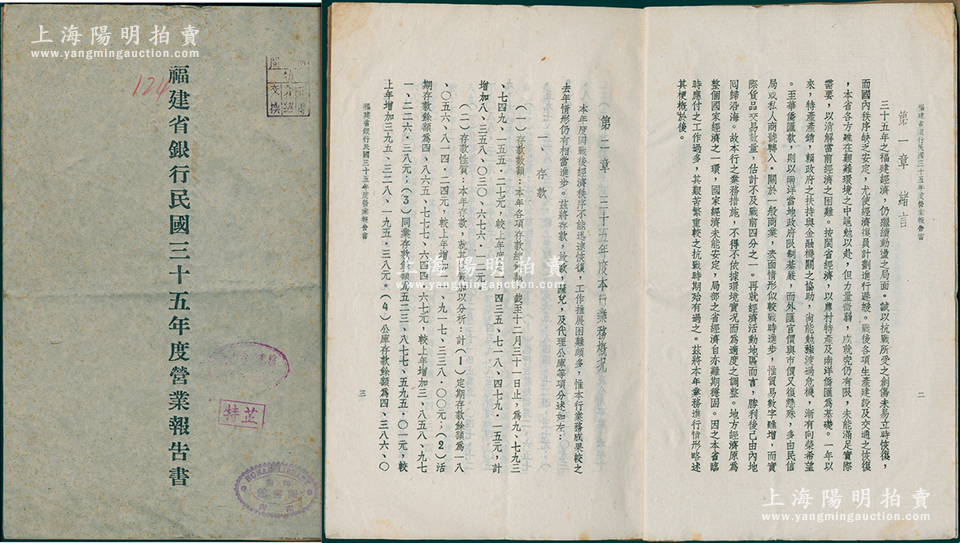 上海陽明拍賣
www.yangmingauction.com
124
福建省銀行民國三十五年度營業報告書
特芷
福建省銀行民國三十五年度營業報告書
二
第一章　緒言
三十五年之福建經濟，仍繼續動盪之局面。誠以抗戰所受之創傷未易立時恢復，
而國內秩序缺乏安定，尤使經濟復員計劃進行遲緩。戰後各項生產建設及交通之恢復
，本省各方雖在艱難環境之中黽勉以赴，但力量微弱，成就究仍有限，未能滿足實際
需要，以消解當前經濟之困難。按閩省經濟，以農村特產及南洋僑匯為基礎。一年以
來，特產產銷，賴政府之扶持與金融機關之協助，尚能勉強渡過危機，漸有向榮希望
。至華僑匯款，則以南洋當地政府限制綦嚴，而外匯官價與市價又復懸殊，多由民信
局或私人商號轉入。關於一般商業，表面情形似較戰時進步，惟貿易數字雖增，而實
際貨品交易數量，估計不及戰前四分之一。再就經濟活動地區而言，勝利後已由內地
同歸沿海。故本行之業務措施，不得不依據環境實况而為適度之調整。地方經濟原為
整個國家經濟之一環，國家經濟未能安定，局部之省經濟自亦難期穩固。因之本省臨
時應付之工作過多，其艱苦繁重較之抗戰時期殆有過之。茲將本年業務進行情形略述
其梗概於後。
第二章　三十五年度本行業務概况
本年度因戰後經濟秩序不能迅速恢復，工作推展困難頗多，惟本行業務成果較之
去年情形仍有相當進步。茲將存款，放款，匯兌，及代理公庫等項分述如左：
一、存款
（一）存款數額：本年各項存款總餘額，截至十二月三十一日止，為九、七九三
、七四九、一五五・二七元，較上年度一、四三五、七一八、四七九・一五元，計
增加八、三五八、〇三〇、六七六・一二元。
（二）存款性質：本年存款，就其性質加以分析：計（1）定期存款餘額為一八
、〇五六、八一四・二四元，較上年增加一、九一七、三三八・〇〇元；（2）活
期存款餘額為四、八六五、七七七、六四四・六七元，較上年增加三、八五八、九七
一、二二六・三八元；（3）同業存款餘額為五二三、八七七、五九五・〇一元，較
上年增加三九五、三二八、一九五・三八元。（4）公庫存款餘額為四、三八六、〇
福建省銀行民國三十五年度營業報告書
三
上海陽明拍賣
www.yangmingauction.com